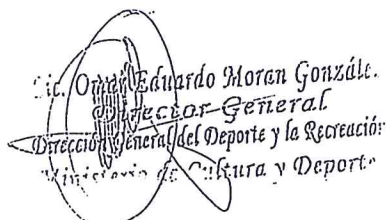 Lic. Omar Eduardo Moran Gonzále.
Director General
Dirección General del Deporte y la Recreación
Ministerio de Cultura y Deporte